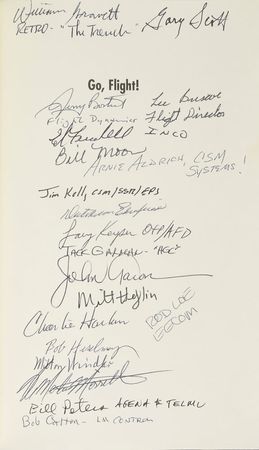 William Gravett Gary Scott
RETRO - "The Trench"
Go, Flight!
Jerry Bostick Lee Briscoe
Flight Dynamics Flight Director
Ed Fendell INCO
Bill Moon
ARNIE ALDRICH, CSM
SYSTEMS!
Jim Kelly, CSM/SSR/EPS
Larry Keyser
JACK
John Aaron
Milt Heflin
Charlie Harlan
ROD LOE
EECOM
Bob
Milton Windler
Bill Peters AGENA & TELMU
Bob Carlton - LM CONTROL